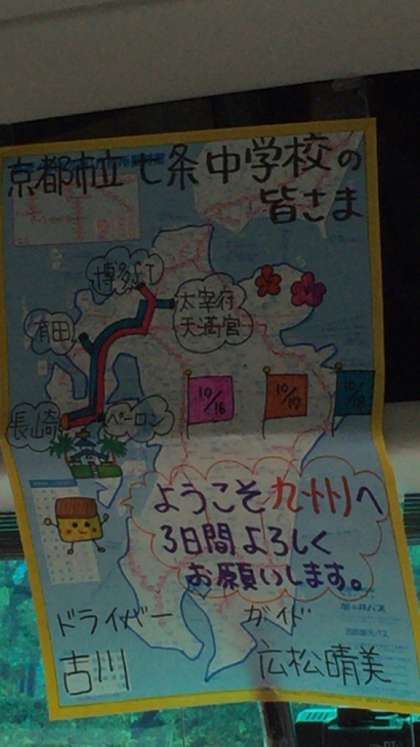 京都市立七条中学校の
皆さま
博多駅
太宰府
天満宮
有田
長崎
ペーロン
10/16
10/17
10/18
ようこそ九州へ
3日間よろしく
お願いします。
ドライバー
ガイド
古川
広松晴美